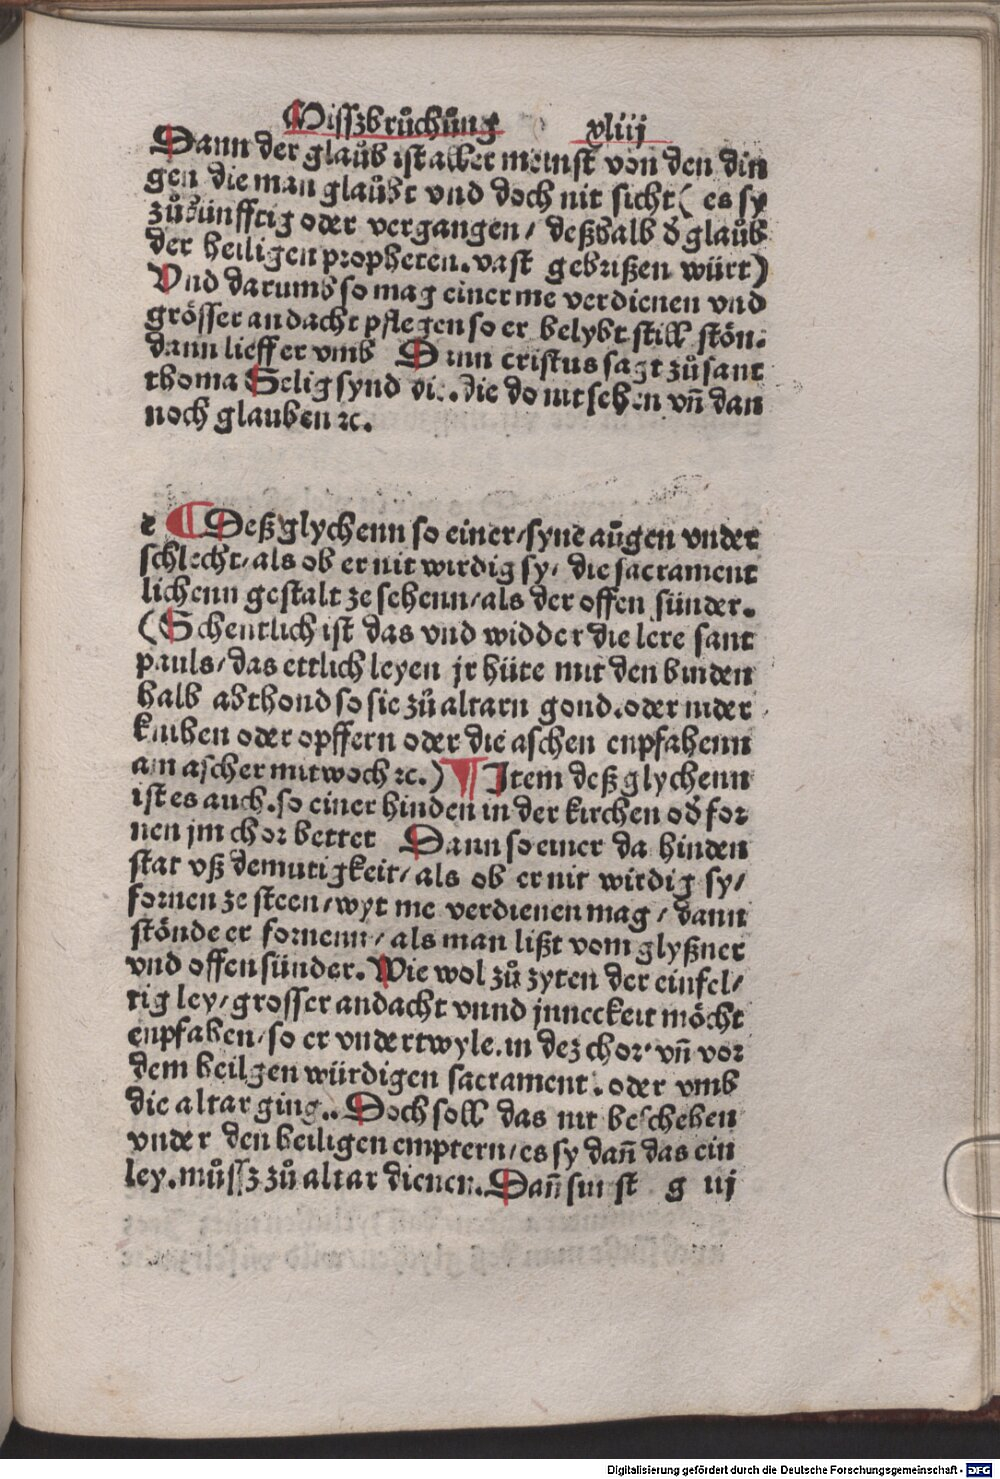 Misszbrůchůng xliij
Dann der glaůb ist aller meinst von den din
gen die man glaůbt vnd doch nit sicht ( es sy
zůkünfftig oder vergangen / deßhalb d̕ glaůb
der heiligen propheten. vast gebrißen würt )
Vnd darumb so mag einer me verdienen vnd
grösser andacht pflegen so er belybt still stön.
dann lieff er vmb Dann cristus sagt zů sant
thoma Selig synd die. die do nit sehen vñ dan
noch glauben ⁊c.
e ¶ Deßglychenn so einer / syne aůgen vnder
schlecht / als ob er nit wirdig sy / die sacrament
lichenn gestalt ze sehenn / als der offen sünder.
( Schentlich ist das vnd widder die lere sant
pauls / das ettlich leyen jr hüte mit den binden
halb abthond so sie zů altarn gond. oder nider
knüben oder opffern oder die aschen enpfahenn
am ascher mitwoch ⁊c. ) ¶ Item deßglychenn
ist es auch. so einer hinden in der kirchen od̕ for
nen jm chor bettet Dann so einer da hinden
stat vß demutigkeit / als ob er nit wirdig sy /
fornen ze steen / wyt me verdienen mag / dann
stönde er fornenn / als man lißt vom glyßner
vnd offen sünder. Wie wol zů zyten der einfel /
tig ley / grosser andacht vnnd jnneckeit möcht
enpfahen / so er vndertwyle. in dez chor vñ vor
dem heilgen würdigen sacrament. oder vmb
die altar ging.. Doch soll das nit beschehen
vnder den heiligen emptern / es sy dañ das ein
ley. můssz zů altar dienen. Dañ sunst g iij
Digitalisierung gefördert durch die Deutsche Forschungsgemeinschaft - DFG